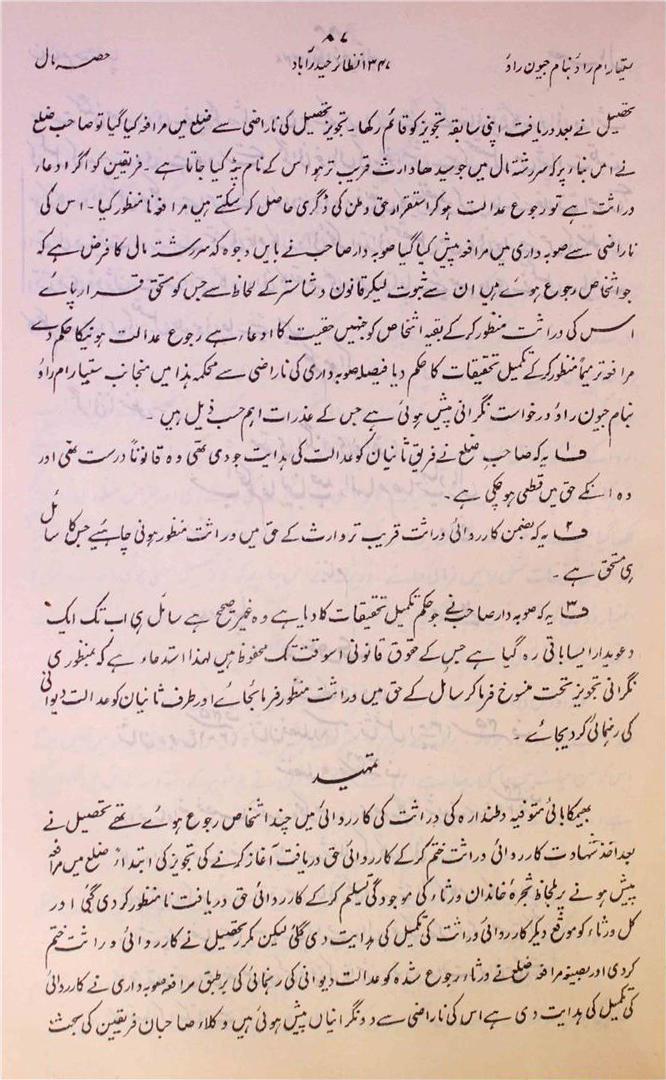 ۸۷
ستیارام راؤ بنام جیون راؤ
۱۳۴۷ نظائر حیدرآباد
حصہ مال
تحصیل نے بعد دریافت اپنی سابقہ تجویز کو قائم رکھا۔ تجویز تحصیل کی ناراضی سے ضلع میں مرافعہ کیا گیا تو صاحب ضلع
نے اس بناء پر کہ سررشتہ مال میں جو سیدھا وارث قریب تر ہو اس کے نام پٹہ کیا جاتا ہے۔ فریقین کو اگر ادعاء
وراثت ہے تو رجوع عدالت ہو کر استقرار حق وطن کی ڈگری حاصل کر سکتے ہیں مرافعہ نامنظور کیا۔ اس کی
ناراضی سے صوبہ داری میں مرافعہ پیش کیا گیا صوبہ دار صاحب نے بایں وجوہ کہ سررشتہ مال کا فرض ہے کہ
جو اشخاص رجوع ہوئے ہیں ان سے ثبوت لیکر قانون و شاستر کے لحاظ سے جس کو مستحق قرار پائے
اس کی وراثت منظور کر کے بقیہ اشخاص کو جنہیں حقیت کا ادعاء ہے رجوع عدالت ہونیکا حکم دے
مرافعہ ترمیماً منظور کر کے تکمیل تحقیقات کا حکم دیا فیصلہ صوبہ داری کی ناراضی سے محکمہ ہذا میں منجانب ستیارام راؤ
بنام جیون راؤ درخواست نگرانی پیش ہوئی ہے جس کے عذرات اہم حسب ذیل ہیں۔
ف۱ یہ کہ صاحب ضلع نے فریق ثانیان کو عدالت کی ہدایت جو دی تھی وہ قانوناً درست تھی اور
وہ انکے حق میں قطعی ہو چکی ہے۔
ف۲ یہ کہ بضمن کارروائی وراثت قریب تر وارث کے حق میں وراثت منظور ہونی چاہئیے جس کا سائل
ہی مستحق ہے۔
ف۳ یہ کہ صوبہ دار صاحب نے جو حکم تکمیل تحقیقات کا دیا ہے وہ غیر صحیح ہے سائل ہی اب تک ایک
دعویدار ایسا باقی رہ گیا ہے جس کے حقوق قانونی اسوقت تک محفوظ ہیں لہذا استدعاء ہے کہ بمنظوری
نگرانی تجویز تحت منسوخ فرما کر سائل کے حق میں وراثت منظور فرمائی جائے اور طرف ثانیان کو عدالت دیوانی
کی رہنمائی کر دیجائے۔
تمہید
بھیمکابائی متوفیہ وطندارہ کی وراثت کی کارروائی میں چند اشخاص رجوع ہوئے تھے تحصیل نے
بعد اخذ شہادت کارروائی وراثت ختم کر کے کارروائی حق دریافت آغاز کرنے کی تجویز کی ابتداءً ضلع میں مرافعہ
پیش ہونے پر بلحاظ شجرۂ خاندان ورثاء کی موجودگی تسلیم کر کے کارروائی حق دریافت نامنظور کر دی گئی اور
کل ورثاء کو موقع دیکر کارروائی وراثت کی تکمیل کی ہدایت دی گئی لیکن مکرر تحصیل نے کارروائی وراثت ختم
کردی اور بصیغہ مرافعہ ضلع نے ورثاء رجوع شدہ کو عدالت دیوانی کی رہنمائی کی بر طبق مرافعہ صوبہ داری نے کارروائی
کی تکمیل کی ہدایت دی ہے اس کی ناراضی سے دو نگرانیاں پیش ہوئی ہیں وکلاء صاحبان فریقین کی بحث